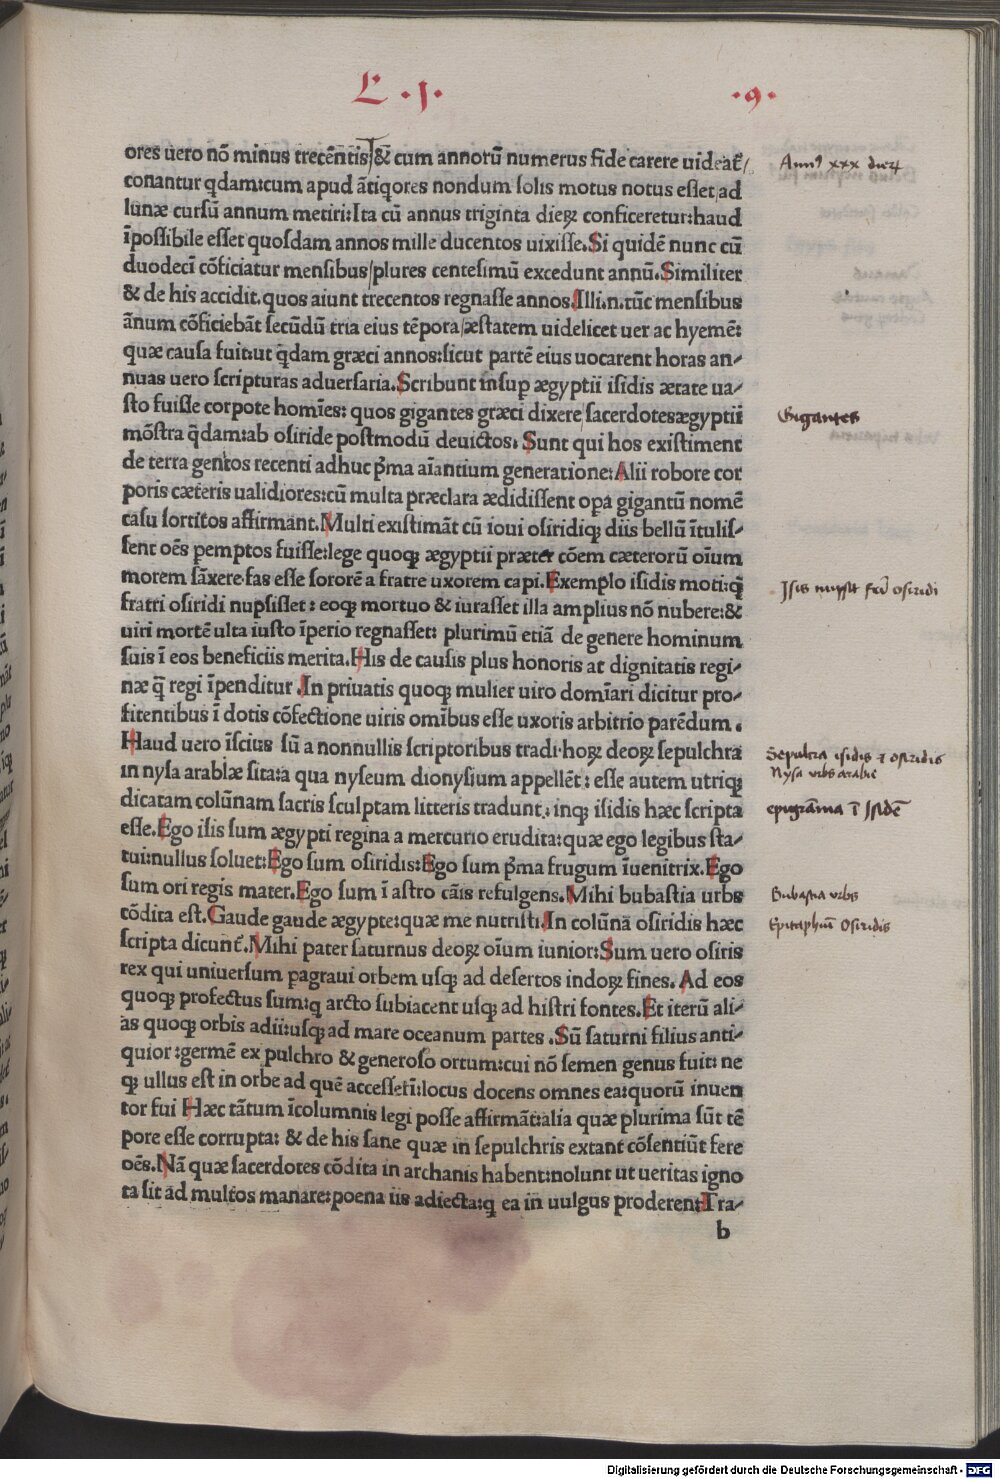 L · I ·
· 9 ·
ores uero nõ minus trecẽtis/& cum annorũ numerus fide carere uideat᷑/
conantur qdam:cum apud ãtiqores nondum solis motus notus esset,ad
lunæ cursũ annum metiri:Ita cũ annus triginta dieꝝ conficeretur:haud
ĩpossibile esset quosdam annos mille ducentos uixisse.Si quidẽ nunc cũ
duodecĩ cõficiatur mensibus/plures centesimũ excedunt annũ.Similiter
& de his accidit.quos aiunt trecentos regnasse annos.Illi.n.tũc mensibus
ãnum cõficiebãt secũdũ tria eius tẽpora/æstatem uidelicet uer ac hyemẽ:
quæ causa fuit:ut q̃dam græci annos:sicut partẽ eius uocarent horas an-
nuas uero scripturas aduersaria.Scribunt insup ægyptii isidis ætate ua-
sto fuisse corpote homĩes: quos gigantes græci dixere/sacerdotesægyptii
mõstra q̃dam:ab osiride postmodũ deuictos. Sunt qui hos existiment
de terra genitos recenti adhuc p̃ma aĩantium generatione:Alii robore cor
poris cæteris ualidiores:cũ multa præclara ædidissent opa gigantũ nomẽ
casu sortitos affirmant.Multi existimãt cũ ioui osiridiqꝫ diis bellũ ĩtulis-
sent oẽs pemptos fuisse:lege quoqꝫ ægyptii præter cõem cæterorũ oĩum
morem sãxere fas esse sororẽ a fratre uxorem capi.Exemplo isidis moti:q̃
fratri osiridi nupsisset: eoqꝫ mortuo & iurasset illa amplius nõ nubere:&
uiri mortẽ ulta iusto ĩperio regnasset: plurimũ etiã de genere hominum
suis ĩ eos beneficiis merita.His de causis plus honoris ac dignitatis regi-
næ q̃ regi ĩpenditur.In priuatis quoqꝫ mulier uiro domĩari dicitur pro-
fitentibus ĩ dotis cõfectione uiris omĩbus esse uxoris arbitrio parẽdum.
Haud uero ĩscius sũ a nonnullis scriptoribus tradi·hoꝝ deoꝝ sepulchra
in nysa arabiæ sita:a qua nyseum dionysium appellẽt: esse autem utriqꝫ
dicatam colũnam sacris sculptam litteris tradunt: inqꝫ isidis hæc scripta
esse.Ego isis sum ægypti regina a mercurio erudita:quæ ego legibus sta-
tui:nullus soluet:Ego sum osiridis:Ego sum p̃ma frugum ĩuenitrix.Ego
sum ori regis mater.Ego sum ĩ astro cãis refulgens.Mihi bubastia urbs
cõdita est.Gaude gaude ægypte:quæ me nutristi.In colũna osiridis hæc
scripta dicunt᷑.Mihi pater saturnus deoꝝ oĩum iunior:Sum uero osiris
rex qui uniuersum pagraui orbem usqꝫ ad desertos indoꝝ fines. Ad eos
quoqꝫ profectus sum:q arcto subiacent usqꝫ ad histri fontes.Et iterũ ali-
as quoqꝫ orbis adii:usqꝫ ad mare oceanum partes .Sũ saturni filius anti-
quior:germẽ ex pulchro & generoso ortum:cui nõ semen genus fuit: ne
qꝫ ullus est in orbe ad quẽ accesserĩ:locus docens omnes ea:quorũ inuen
tor fui Hæc tãtum ĩcolumnis legi posse affirmãt:alia quæ plurima sũt tẽ
pore esse corrupta: & de his sane quæ in sepulchris extant cõsentiũt fere
oẽs.Nã quæ sacerdotes cõdita in archanis habent:nolunt ut ueritas igno
ta sit ad multos manare:poena iis adiecta:q ea in uulgus proderent:Tra-
b
Annꝰ xxx dieꝝ
Gigantes
Isis nupsit fr̃i osiridi
Sepulcra isidis ⁊ osiridis
Nysa urbs arabie
epigrãma ĩ Isidẽ
Bubastia urbs
Epitaphiũ Osiridis
Digitalisierung gefördert durch die Deutsche Forschungsgemeinschaft - DFG